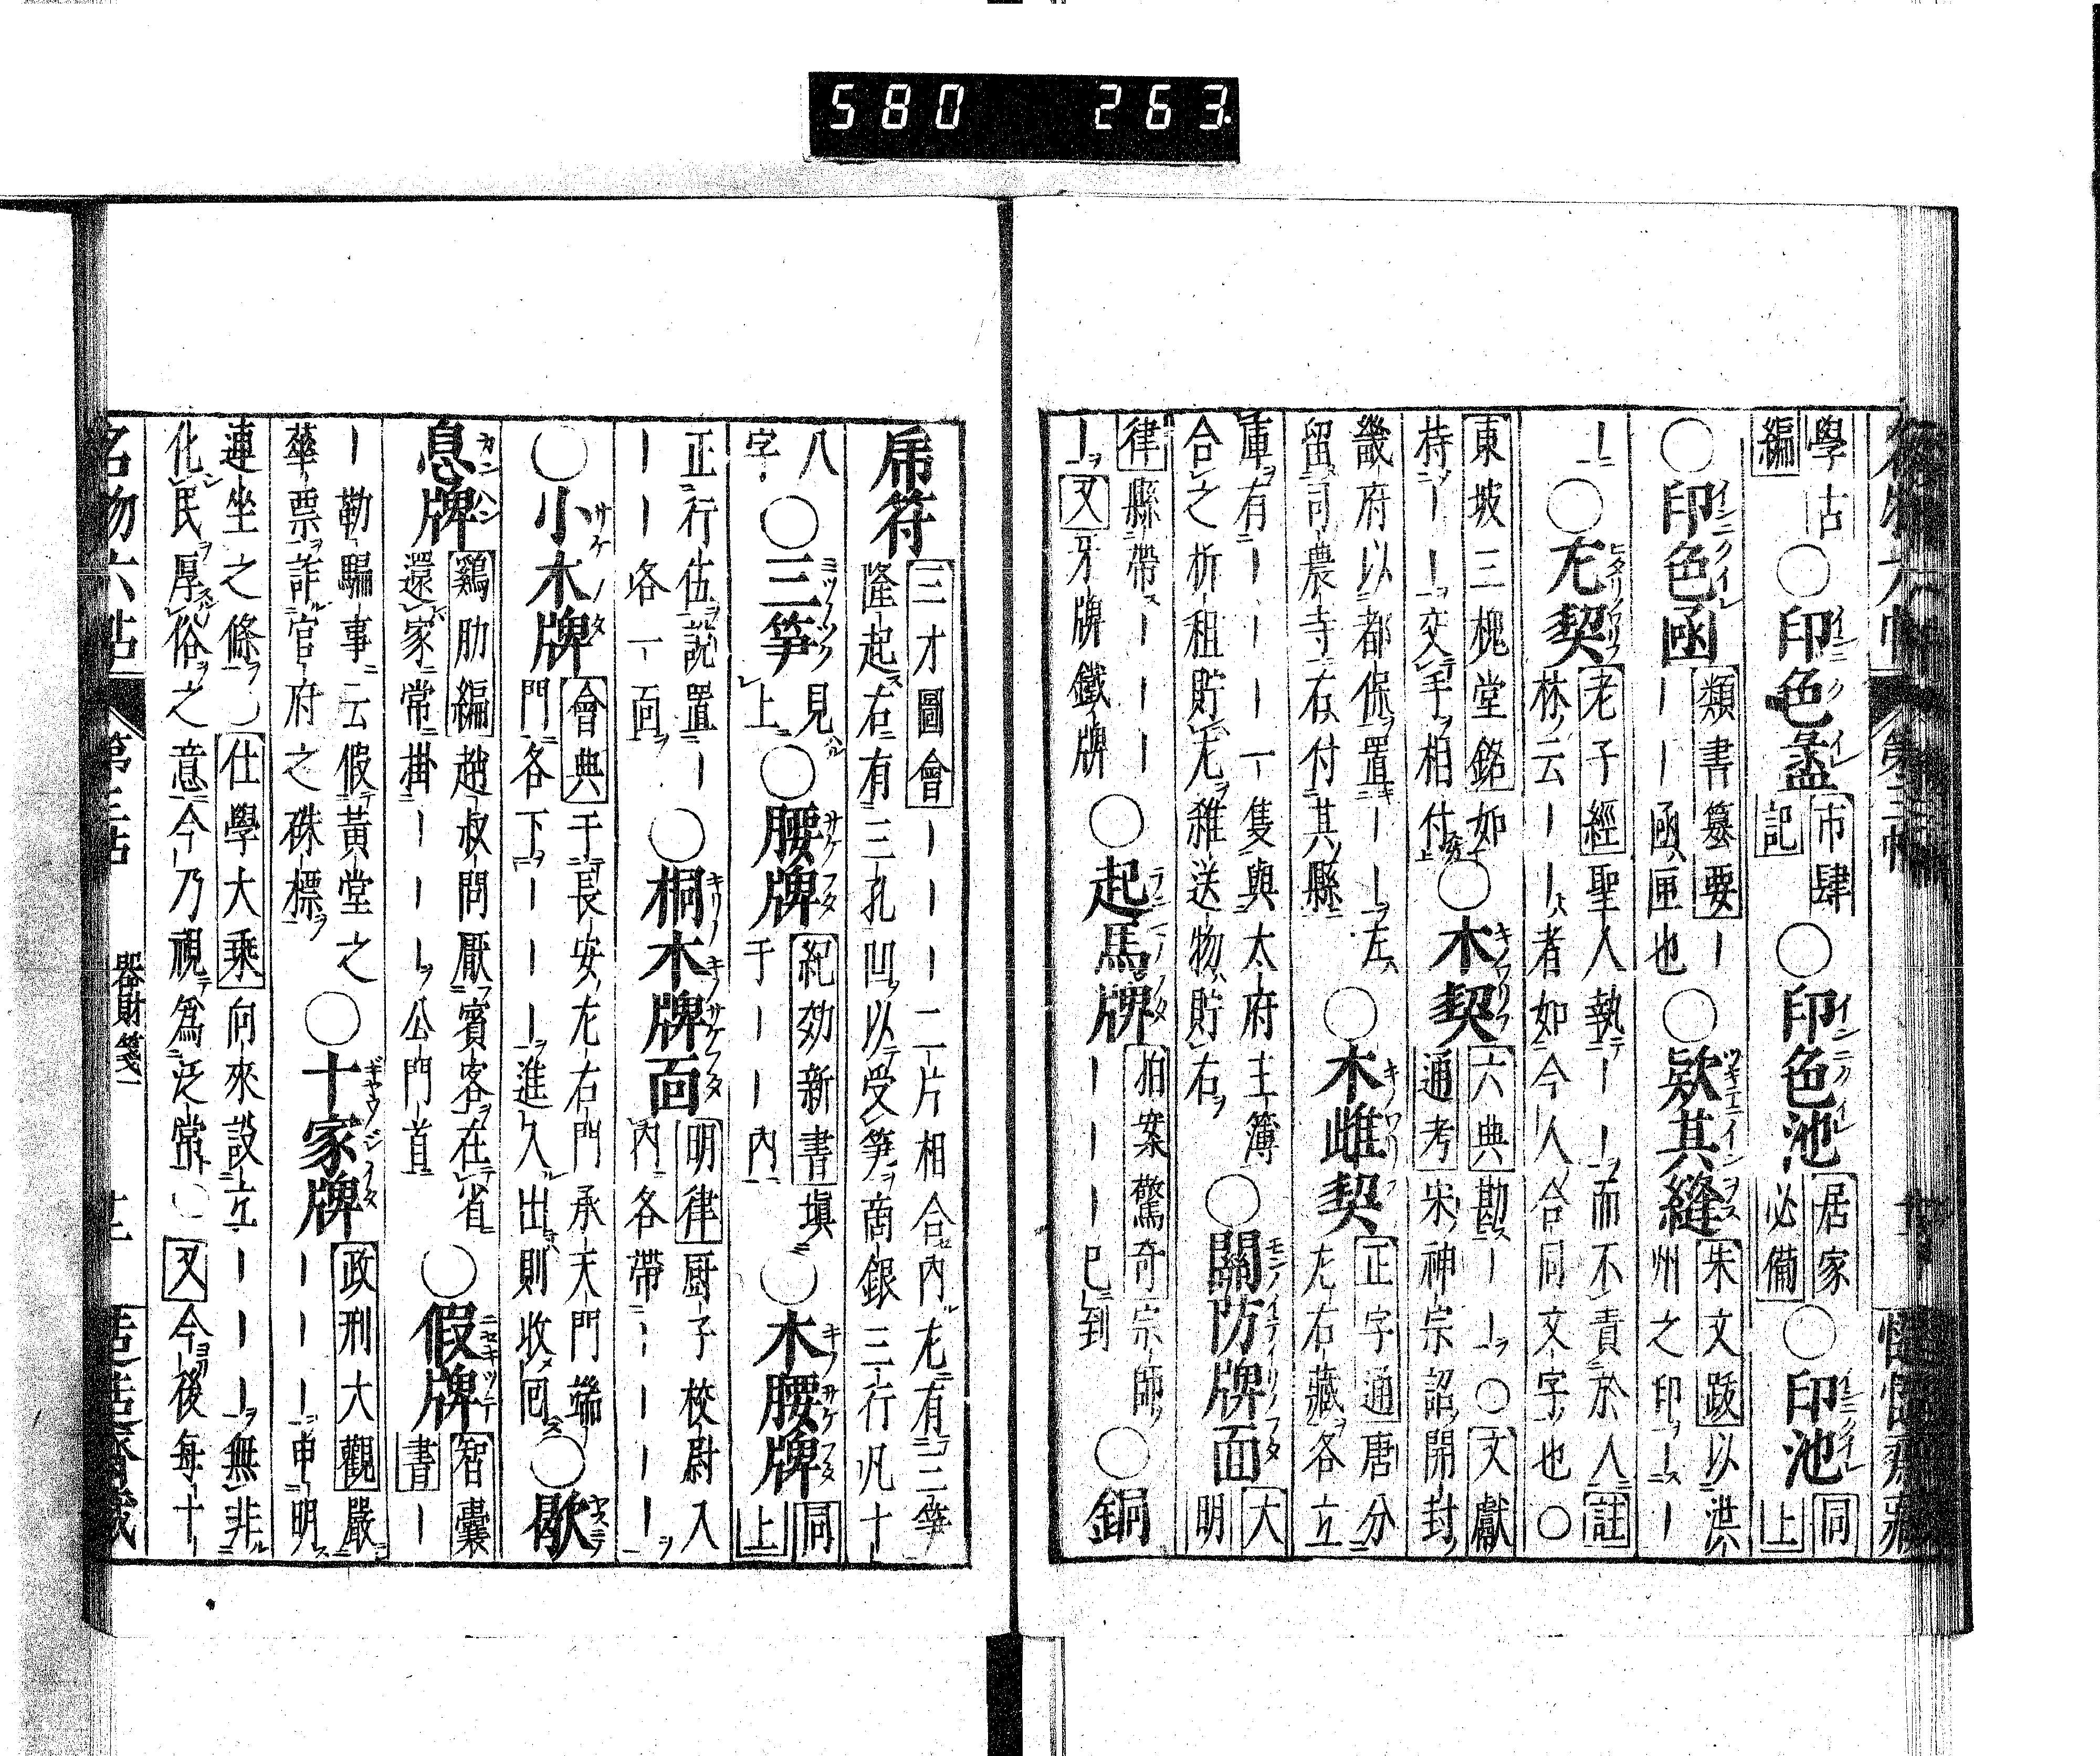 580 263
學古
編
○印色盝
市肆
記
○印色池
居家
必備
○印池
同
上
○印色函
類書纂要ー
ーー函匣也
○歀其縫
朱文䟦以洪
州之印ーー
ー
○左契
老子經聖人執ーー而不責於人註
林云ーー者如今人合同文字也○
東坡三槐堂銘如
持ーー交手相付
○木契
六典勘ーー○文獻
通考宋神宗詔開封
畿府以都保置ーー左
留司農寺右付其縣
○木雌契
正字通唐分
左右藏各立
庫有ーーー一隻與太府主簿
合之析租貯左雜送物貯右
○關防牌面
大
明
律縣帶ーーーー
ー又牙牌鐵牌
○起馬牌
拍案驚奇宗師
ーーー已到
○銅
乕符
三才圖會ーー二片相合內左有三筍
隆起右有三孔凹以受筍商銀三行凡十
八
字
○三笋
見
上
○腰牌
紀効新書塡
于ーー內
○木腰牌
同
上
正行伍說置ー
ーー各一面
○桐木牌面
明律厨子校尉入
內各帶ーーーー
○小木牌
會典于長安左右門承天門端
門各下ーーー進入出則收囘
○歇
息牌
鷄肋編趙叔問厭賓客在省
還家常掛ーーー公門首
○假牌
智囊
書ー
ー勒騙事云假黃堂之
華票詐官府之硃標
○十家牌
政刑大觀嚴
ーーー申明
連坐之條○仕學大乘向來設立ーーー無非
化民厚俗之意今乃視爲泛常○又今後每十
名物六帖
第三帖
器財箋一